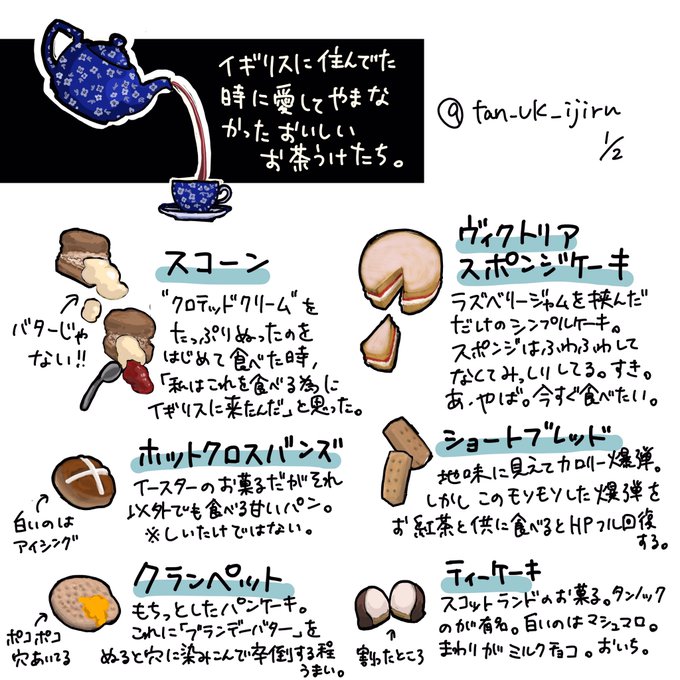 イギリスに住んでた
時に愛してやまな
かったおいしい
お茶うけたち。
@tan_uk_ijiru
1/2
スコーン
バターじゃ
ない!!
"クロテッドクリーム"を
たっぷりぬったのを
はじめて食べた時、
「私はこれを食べる為に
イギリスに来たんだ」と思った。
ヴィクトリア
スポンジケーキ
ラズベリージャムを挟んだ
だけのシンプルケーキ。
スポンジはふわふわして
なくてみっしりしてる。すき。
あ、やば。今すぐ食べたい。
ホットクロスバンズ
イースターのお菓子だがそれ
以外でも食べる甘いパン。
※しいたけではない。
白いのは
アイシング
ショートブレッド
地味に見えてカロリー爆弾。
しかしこのモソモソした爆弾を
お紅茶と供に食べるとHPフル回復
する。
クランペット
もちっとしたパンケーキ。
これに「ブランデーバター」を
ぬると穴に染みこんで卒倒する程
うまい。
ポコポコ
穴あいてる
ティーケーキ
スコットランドのお菓子。タンノック
のが有名。白いのはマシュマロ。
まわりがミルクチョコ。おいち。
割ったところ